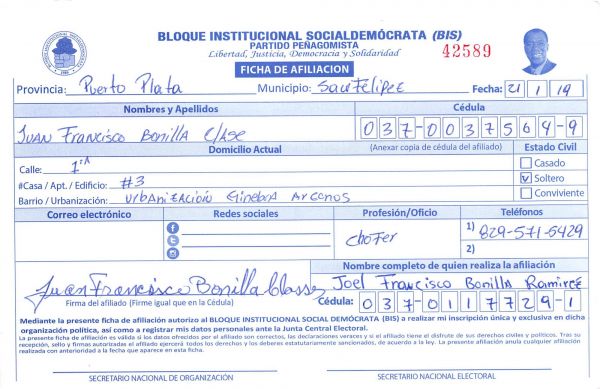 BLOQUE INSTITUCIONAL SOCIALDEMÓCRATA (BIS)
PARTIDO PEÑAGOMISTA
Libertad, Justicia, Democracia y Solidaridad
42589
FICHA DE AFILIACION
Provincia: Puerto Plata Municipio: San Felipe Fecha: 21 1 19
Nombres y Apellidos Cédula
Juan Francisco Bonilla Clase 037-0037564-9
Domicilio Actual (Anexar copia de cédula del afiliado) Estado Civil
Calle: 1ra Casado
#Casa / Apt. / Edificio: #3 Soltero
Barrio / Urbanización: Urbanización Ginebra Arzenos Conviviente
Correo electrónico Redes sociales Profesión/Oficio Teléfonos
Chofer 1) 829-571-6429
2)
Nombre completo de quien realiza la afiliación
Juan Francisco Bonilla Classe Joel Francisco Bonilla Ramirez
Firma del afiliado (Firme igual que en la Cédula) Cédula: 037-0117729-1
Mediante la presente ficha de afiliación autorizo al BLOQUE INSTITUCIONAL SOCIAL DEMÓCRATA (BIS) a realizar mi inscripción única y exclusiva en dicha
organización política, así como a registrar mis datos personales ante la Junta Central Electoral.
La presente ficha de afiliación es válida si los datos ofrecidos por el afiliado son correctos, las declaraciones veraces y si el afiliado tiene el disfrute de sus derechos civiles y políticos. Tras su
recepción, sello y firmas autorizadas el afiliado ejercerá todos los derechos y los deberes estatutariamente sancionados, de acuerdo a la ley. La presente afiliación anula cualquier afiliación
realizada con anterioridad a la fecha que aparece en esta ficha.
SECRETARIO NACIONAL DE ORGANIZACIÓN SECRETARIO NACIONAL ELECTORAL